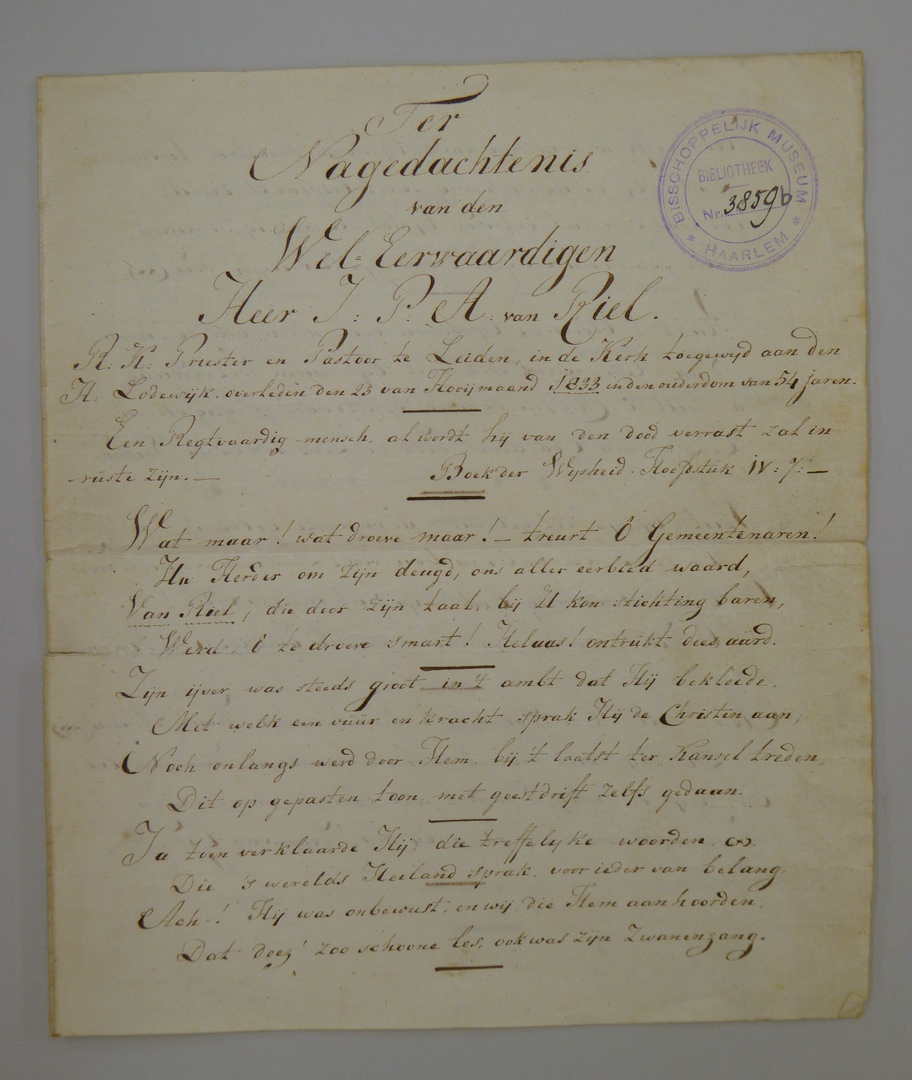 Ter
Nagedachtenis
van den
Wel=Eerwaardigen
Heer J: P: A: van Riel.
R: K: Priester en Pastoor te Leiden, in de Kerk toegewijd aan den
H: Lodewijk. overleden den 23 van Hooijmaand 1833 in den ouderdom van 54 jaren.
Een Regtvaardig mensch, al wordt hij van den dood verrast zal in
ruste zijn. —
Boek der Wijsheid. Hoofdstuk IV: 7: —
Wat maar! wat droeve maar! — treurt Ô Gemeentenaren!
Uw Herder om zijn deugd, ons aller eerbied waard,
Van Riel, die door zijn taal, bij U kon stichting baren,
Werd, ô te droeve smart! Helaas! ontrukt dees aard.
Zijn ijver was steeds groot in 't ambt dat Hij bekleede.
Met welk een vuur en kracht sprak Hij de Christen aan,
Noch onlangs werd door Hem, bij 't laatst ter Kansel treden
Dit op gepasten toon, met geestdrift zelfs gedaan.
Ja toen verklaarde Hij, die treffelyke woorden,
Die 's werelds Heiland sprak, voor ieder van belang
Ach! Hij was onbewust, en wij die Hem aanhoorden,
Dat deez' zoo schoone les, ook was zijn Zwanenzang.
BISSCHOPPELIJK MUSEUM
BIBLIOTHEEK
Nr. 3859b
* HAARLEM *